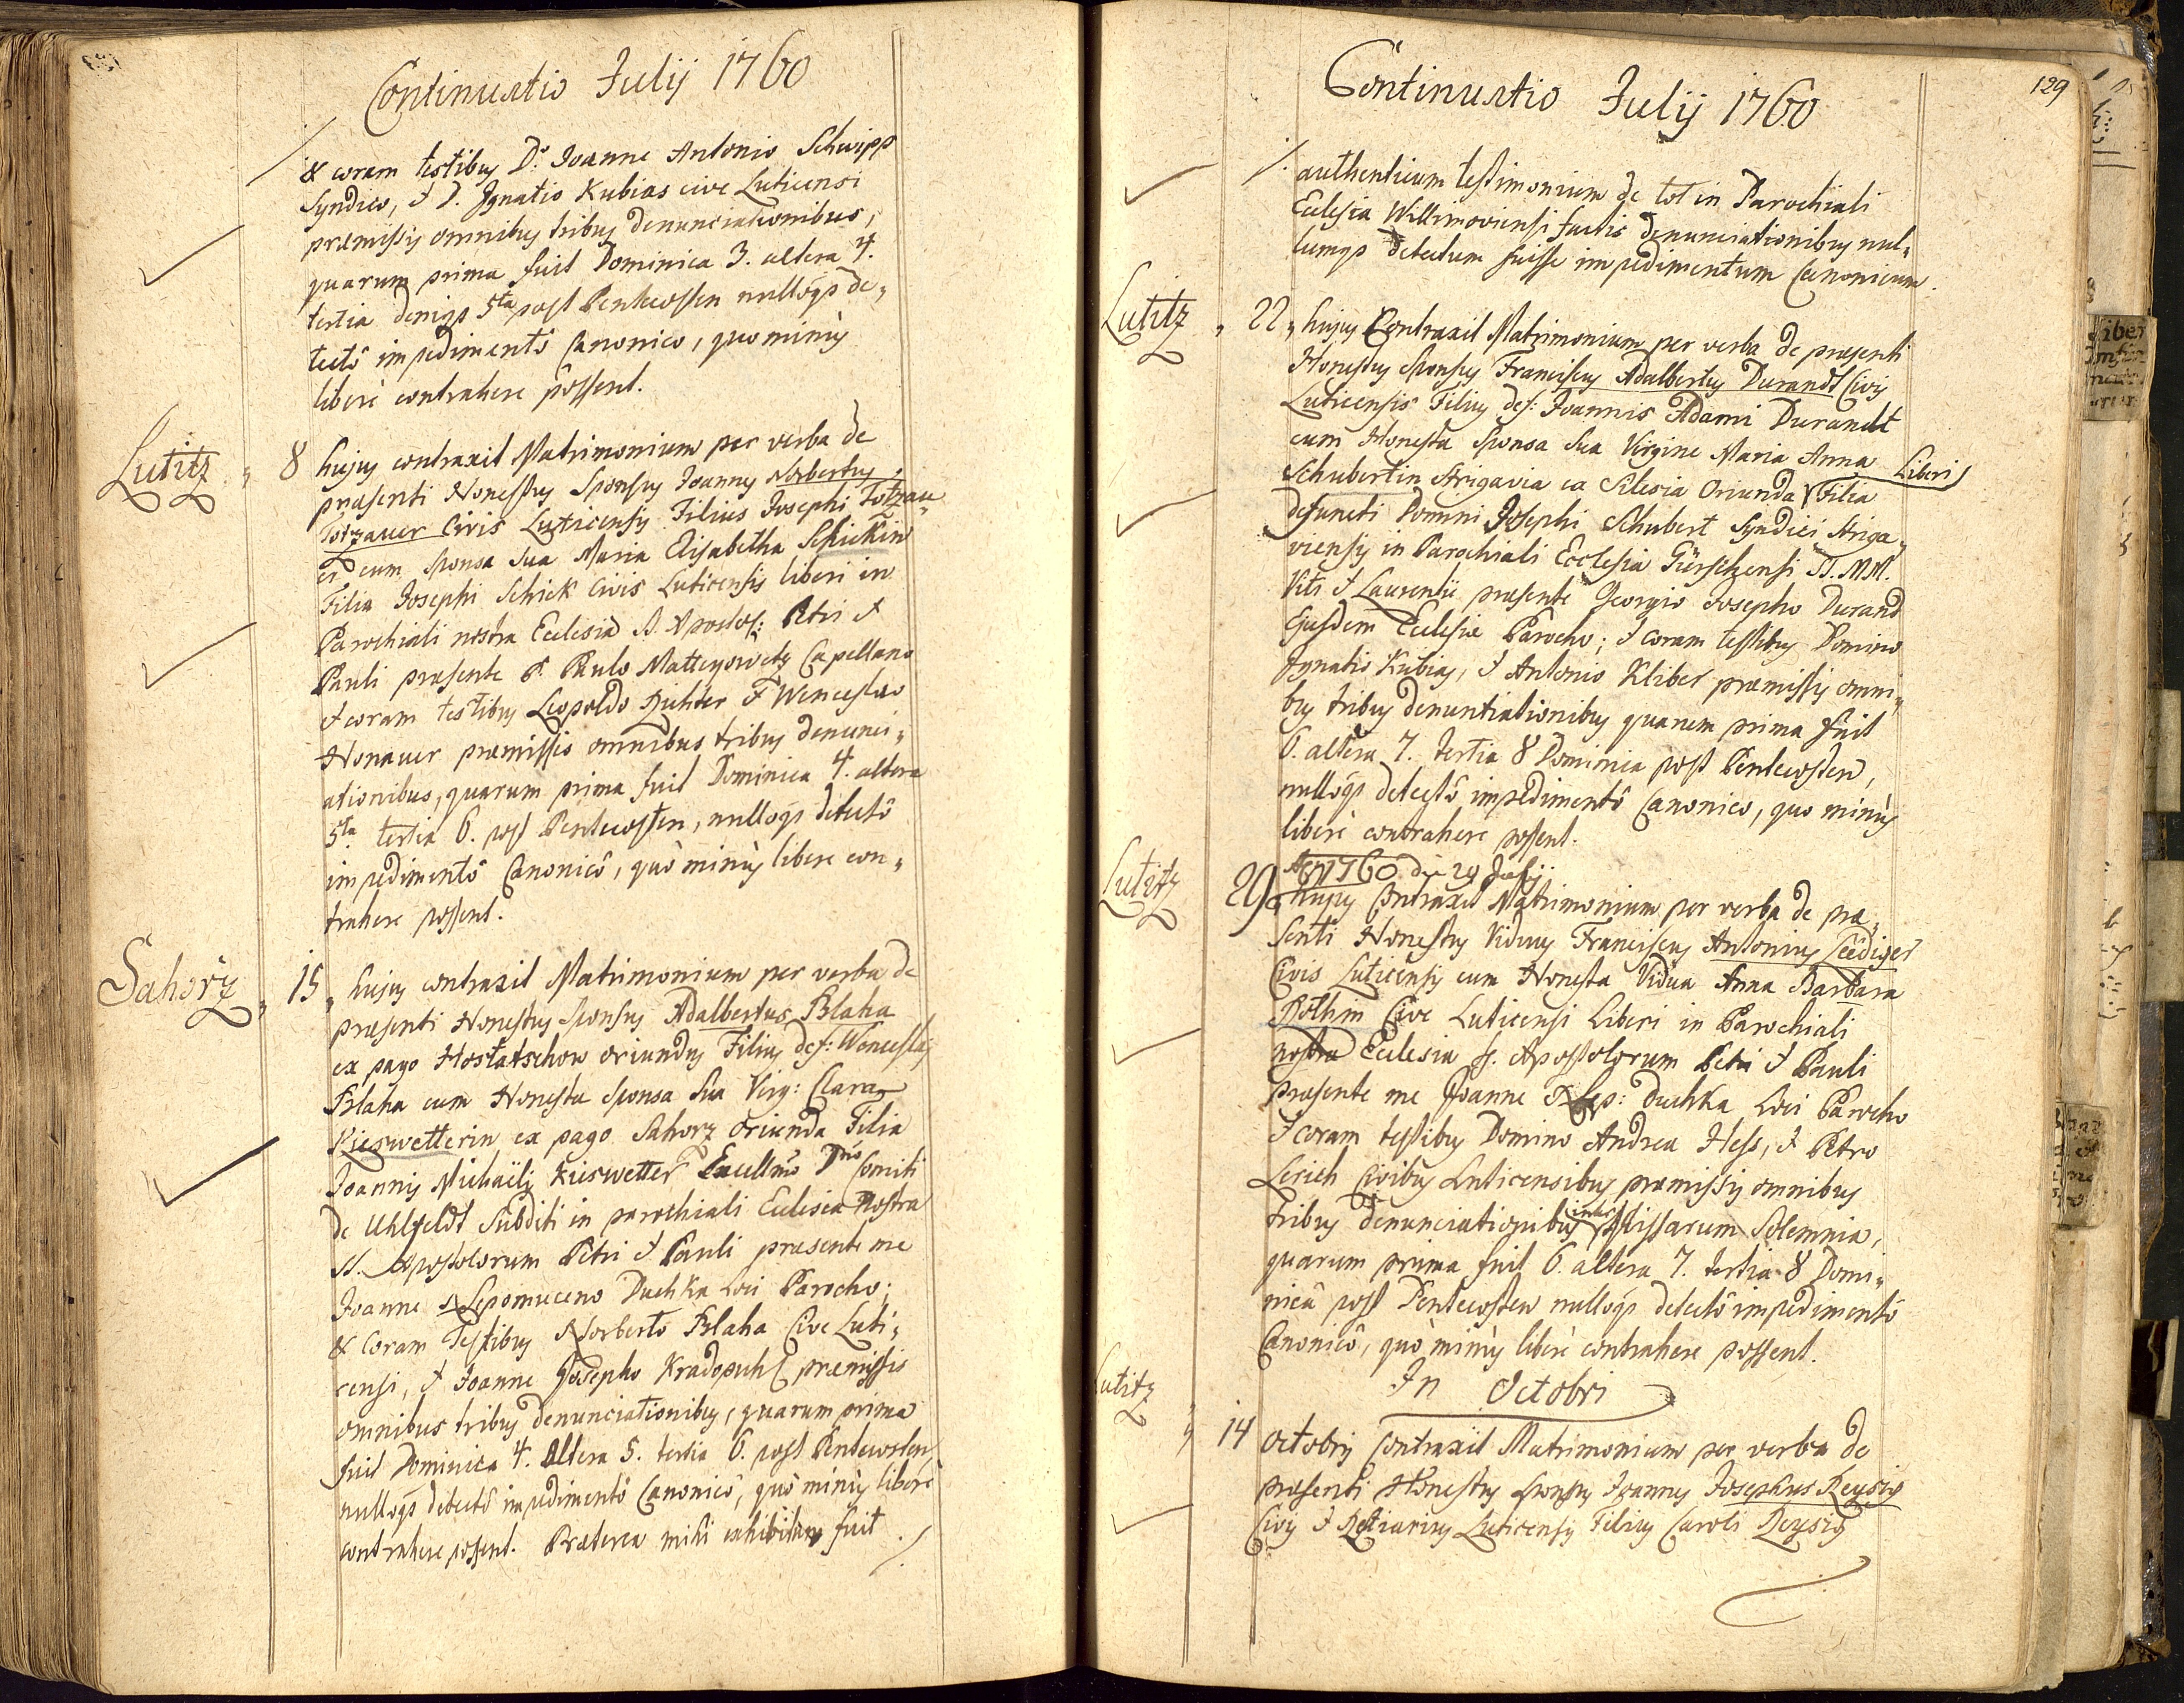 Continuatio Julij 1760
& coram testibus D: Joanne Antonio Schuipp
Syndico, & D. Ignatio Kubias cive Luticensi
præmissis omnibus tribus denunciationibus,
quarum prima fuit Dominica 3. altera 4.
tertia deniqꝫ 5ta post Pentecosten nullôqꝫ de„
tectô impedimentô Canonico, quo minùs
liberè contrahere possent.
Lutitz „ 8 hujus contraxit Matrimonium per verba de
præsenti Honestus Sponsus Joannes Norbertus
Totzauer Civis Luticensis Filius Josephi Totzau„
er cum Sponsa sua Maria Elisabetha Schickin
Filia Josephi Schick Civis Luticensis liberi in
Parochiali nostra Ecclesia S. Apostol: Petri &
Pauli præsente P. Paulo Matteyowetz Capellano
& coram testibus Leopoldo Richter & Wenceslao
Honauer præmissis omnibus tribus denunci„
ationibus, quarum prima fuit Dominica 4. altera
5ta tertia 6. post Pentecosten, nullôqꝫ detectô
impedimentô Canonicô, quò minùs libere con„
trahere possent.
Sahorz „ 15 „ hujus contraxit Matrimonium per verba de
præsenti Honestus Sponsus Adalbertus Blaha
ex pago Hostatschow oriundus Filius def: Wenceslaj
Blaha cum Honesta Sponsa Sua Virg: Clara
Kieswetterin ex pago Sahorz oriunda Filia
Joannis Michaëlis Kieswetter Excellmo Dno Comiti
de Uhlfeldt Subditi in parochiali Ecclesia Nostra
SS. Apostolorum Petri & Pauli præsente me
Joanne Nepomuceno Duchka Loci Parocho;
& Coram Testibus Norberto Blaha Cive Luti„
censi, & Joanne Josepho Kradopuhl præmissis
omnibus tribus denunciationibus, quarum prima
fuit Dominica 4. altera 5. tertia 6. post Pentecosten
nullôqꝫ detectô impedimentô Canonicô, quò minùs liberè
contrahere possent. Præterea mihi exhibitum fuit ./.
129
Continuatio Julij 1760
./. authenticum testimonium de tot in Parochiali
Ecclesia Willimoviensi factis denunciationibus nul„
lumqꝫ detectum fuisse impedimentum Canonicum.
Lutitz „ 22 „ hujus Contraxit Matrimonium per verba de præsenti
Honestus Sponsus Franciscus Adalbertus Durandt Civis
Luticensis Filius def: Joannis Adami Durandt
cum Honesta Sponsa Sua Virgine Maria Anna
Liberi
Schubertin Strigavia ex Silesia Oriunda Filia
defuncti Domini Josephi Schubert Syndici Striga„
viensis in Parochiali Ecclesia Gürschensi SS. MM.
Viti & Laurentii præsente Georgio Josepho Durand
Ejusdem Ecclesiæ Parocho; & coram testibus Domino
Ignatio Kubias, & Antonio Kliber præmissis omni„
bus tribus denuntiationibus quarum prima fuit
6. altera 7. tertia 8 Dominica post Pentecosten,
nullôqꝫ detectô impedimentô Canonico, quo minùs
liberè contrahere possent.
1760 die 29 Julij
Lutitz 29 „ hujus Contraxit Matrimonium per verba de præ„
senti Honestus Viduus Franciscus Antonius Leediger
Civis Luticensis cum Honesta Vidua Anna Barbara
Pothin Cive Luticensi Liberi in Parochiali
nostra Ecclesia S. Apostolorum Petri & Pauli
præsente me Joanne Nep: Duchka Loci Parocho
& coram testibus Domino Andrea Hess, & Petro
Lerich Civibus Luticensibus præmissis omnibus
tribus denunciationibus inter Missarum Solemnia,
quarum prima fuit 6. altera 7. tertia 8 Domi„
nicâ post Pentecosten nullôqꝫ detectô impedimentô
Canonicô, quò minùs liberè contrahere possent.
In Octobri
Lutitz „ 14 Octobris Contraxit Matrimonium per verba de
præsenti Honestus Sponsus Joannes Josephus Reysig
Civis & Restiarius Luticensis Filius Caroli Reysig